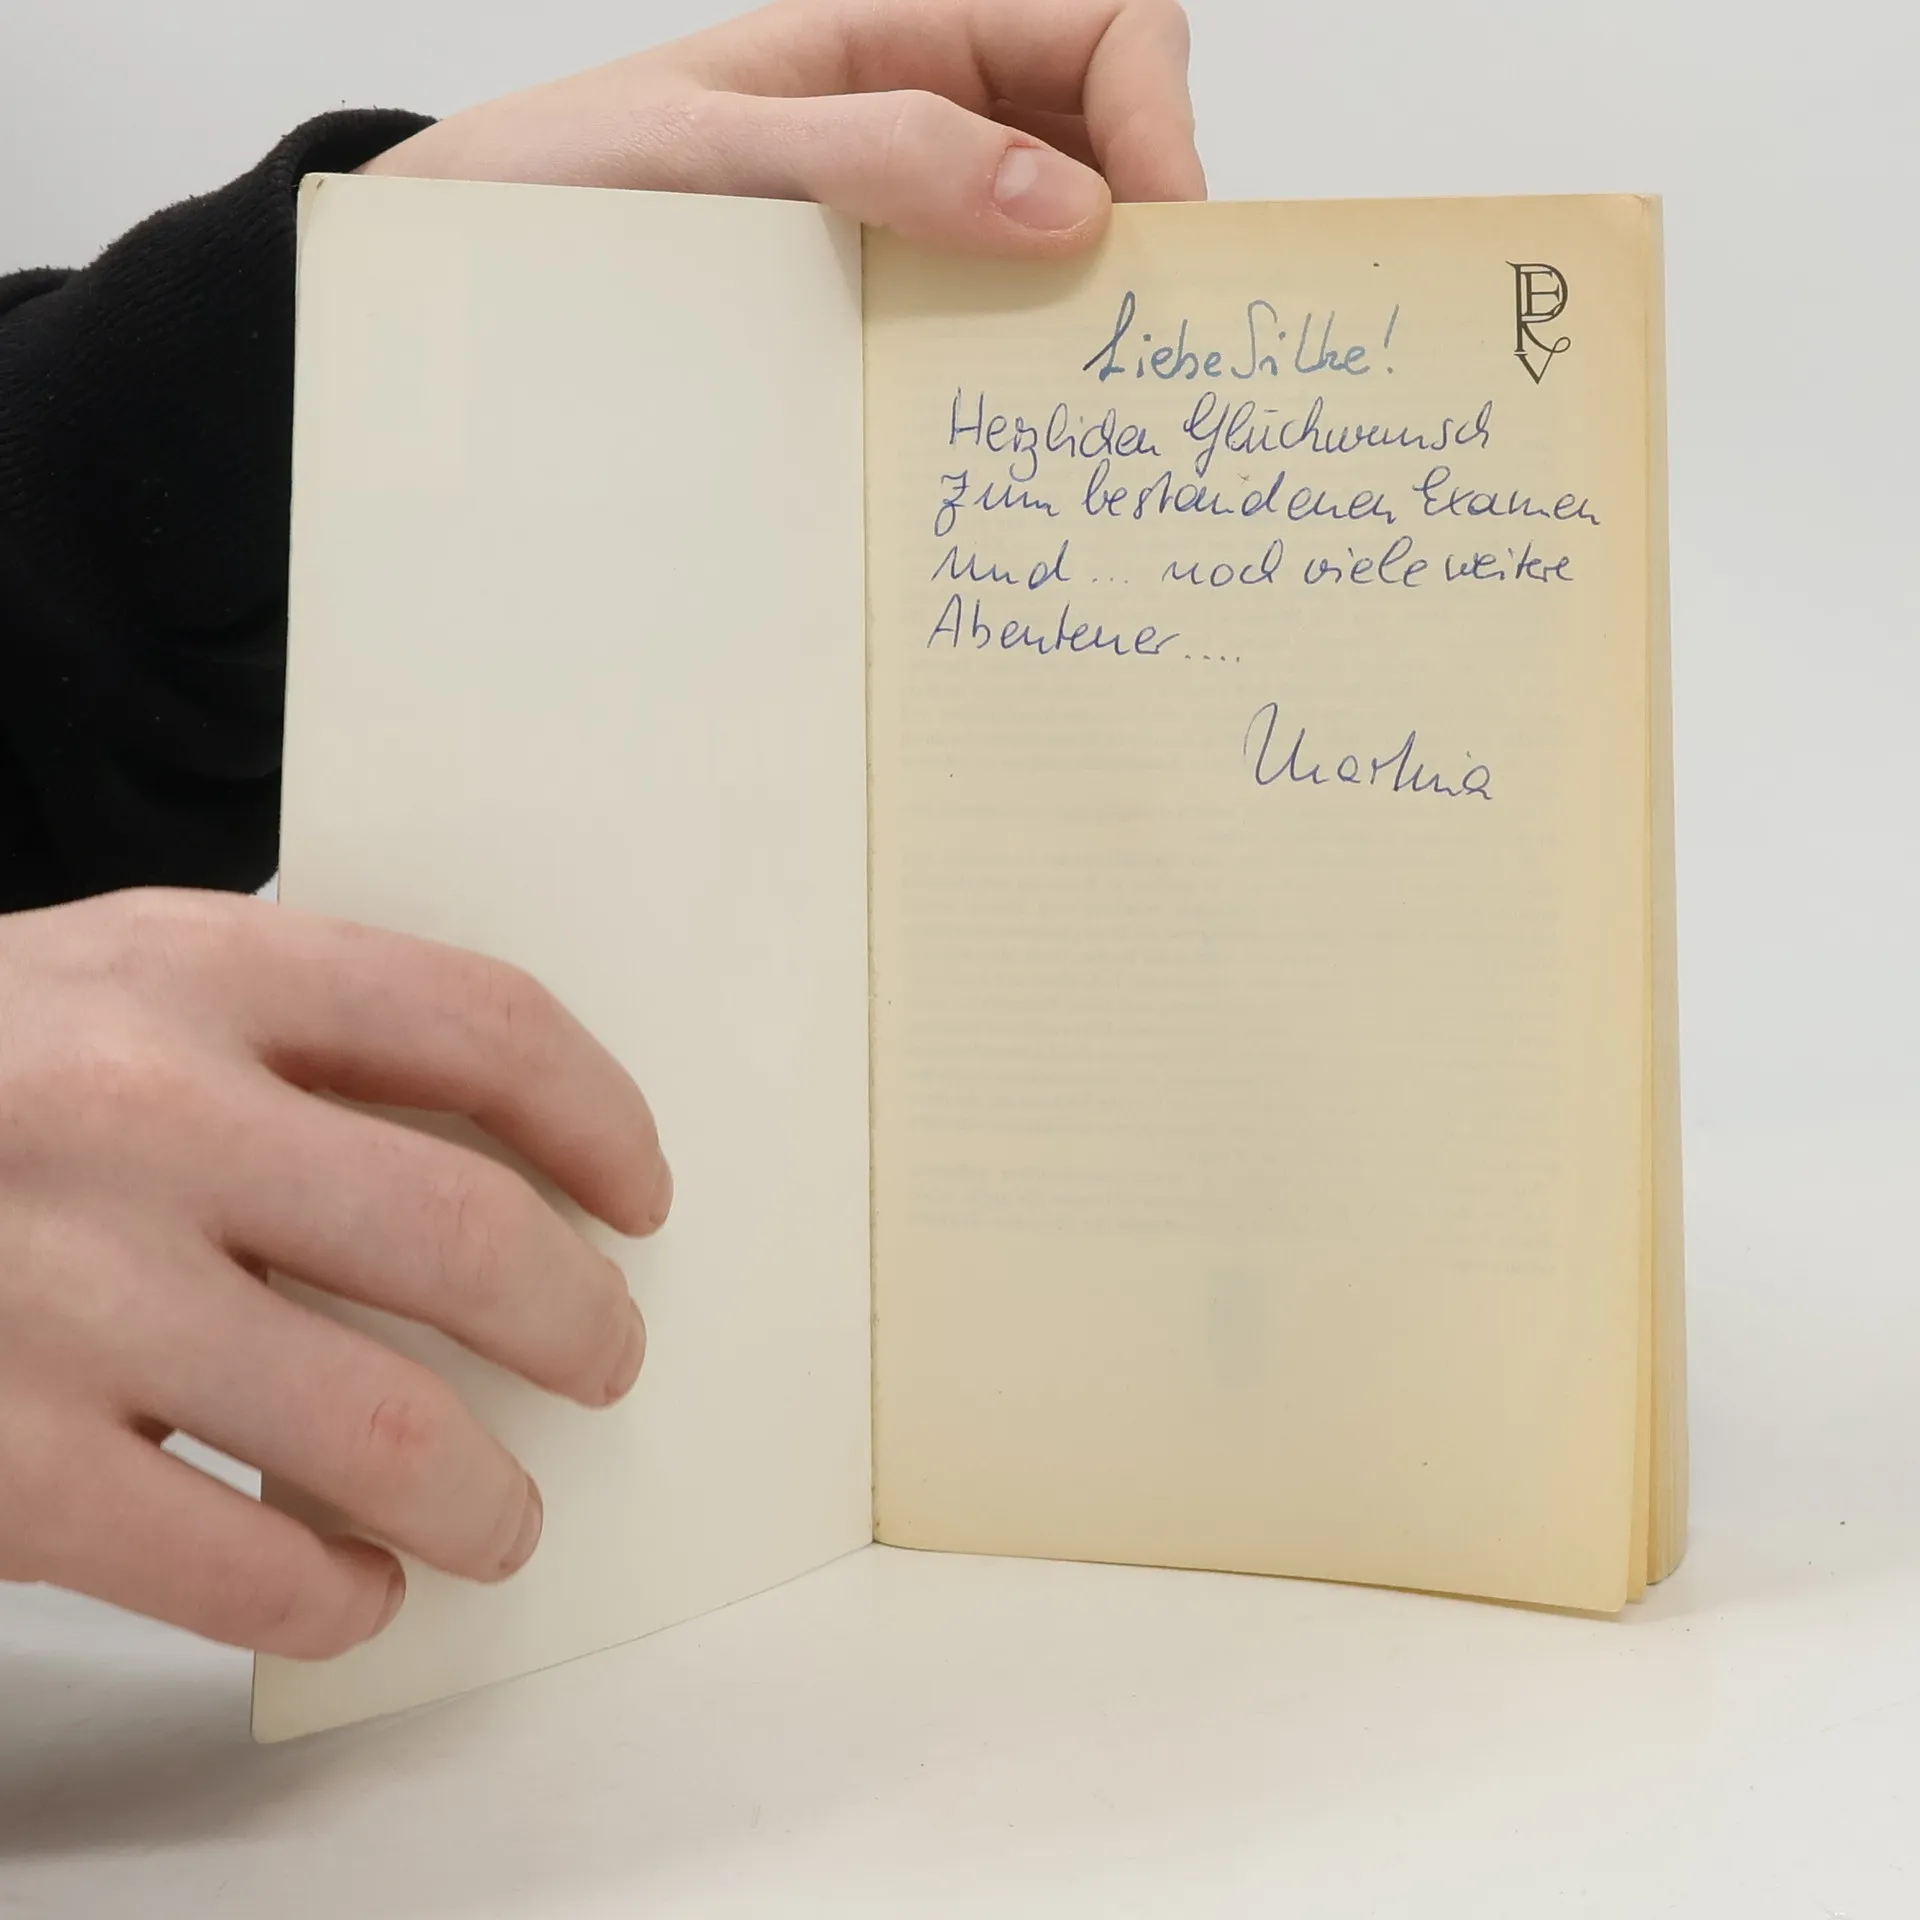 Liebe Silke!
Herzlichen Glückwunsch
zum bestandenen Examen
und... noch viele weitere
Abenteuer....
Martina